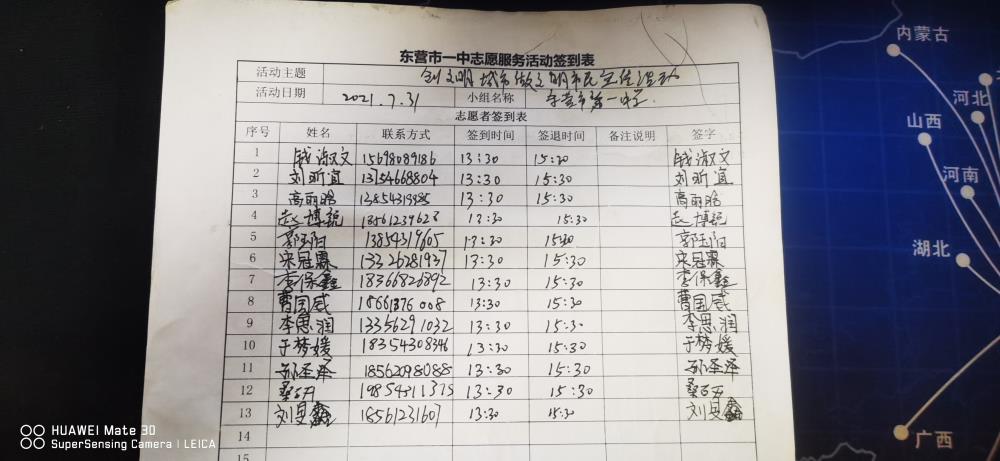 东营市一中志愿服务活动签到表
活动主题 创文明城市做文明市民宣传活动
活动日期 2021.7.31 小组名称 东营市第一中学
志愿者签到表
序号 姓名 联系方式 签到时间 签退时间 备注说明 签字
1 钱淑文 15698089186 13:30 15:30 钱淑文
2 刘昕宜 13754668804 13:30 15:30 刘昕宜
3 高丽晗 13:30 15:30 高丽晗
4 赵博锐 18561239628 13:30 15:30 赵博锐
5 郭钰阳 13854319605 13:30 15:30 郭钰阳
6 宋冠霖 13326281937 13:30 15:30 宋冠霖
7 李保鑫 18366826892 13:30 15:30 李保鑫
8 曹国威 13:30 15:30 曹国威
9 李思润 13356291032 13:30 15:30 李思润
10 于梦媛 18354308346 13:30 15:30 于梦媛
11 孙圣泽 18562098088 13:30 15:30 孙圣泽
12 19854311375 13:30 15:30
13 刘昊鑫 18561231607 13:30 15:30 刘昊鑫
14
15
内蒙古
河北
山西
河南
湖北
广西
HUAWEI Mate 30
SuperSensing Camera | LEICA